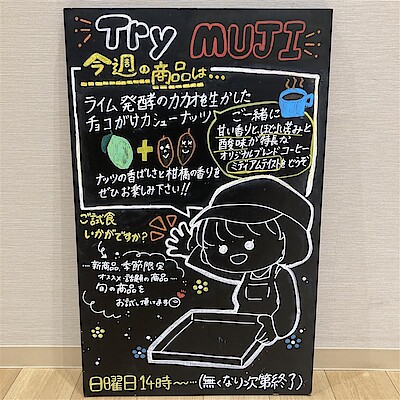 Try MUJI
今週の商品は…
ライム発酵のカカオを生かした
チョコがけカシューナッツ
ナッツの香ばしさと柑橘の香りを
ぜひお楽しみ下さい!!
ご一緒に
甘い香りと、ほどよい苦みと
酸味が特長な
オリジナルブレンドコーヒー
ミディアムテイストをどうぞ
ご試食
いかがですか?
…新商品、季節限定
オススメ・話題の商品…
旬の商品を
お試し頂います
日曜日14時〜…(無くなり次第終了)